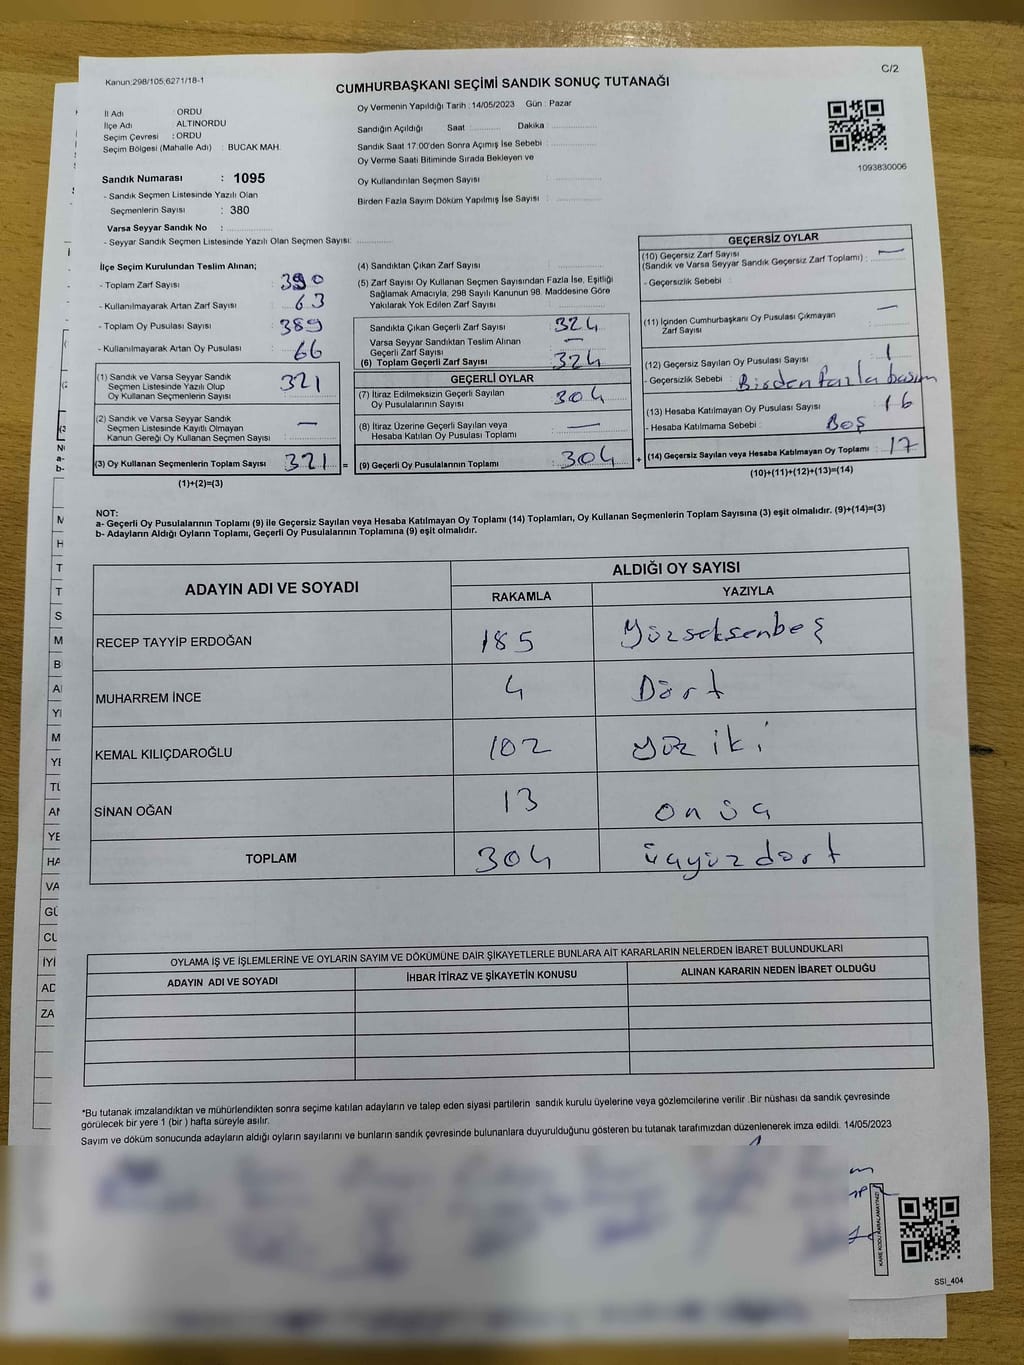 Kanun:298/105;6271/18-1
C/2
CUMHURBAŞKANI SEÇİMİ SANDIK SONUÇ TUTANAĞI
İl Adı : ORDU
İlçe Adı ALTINORDU
Seçim Çevresi : ORDU
Seçim Bölgesi (Mahalle Adı) : BUCAK MAH.
Sandık Numarası : 1095
- Sandık Seçmen Listesinde Yazılı Olan
Seçmenlerin Sayısı : 380
Varsa Seyyar Sandık No :
- Seyyar Sandık Seçmen Listesinde Yazılı Olan Seçmen Sayısı:
Oy Vermenin Yapıldığı Tarih : 14/05/2023 Gün : Pazar
Sandığın Açıldığı Saat : Dakika :
Sandık Saat 17:00'den Sonra Açımış İse Sebebi :
Oy Verme Saati Bitiminde Sırada Bekleyen ve
Oy Kullandırılan Seçmen Sayısı :
Birden Fazla Sayım Döküm Yapılmış İse Sayısı :
1093830006
İlçe Seçim Kurulundan Teslim Alınan;
- Toplam Zarf Sayısı : 390
- Kullanılmayarak Artan Zarf Sayısı : 63
- Toplam Oy Pusulası Sayısı : 389
- Kullanılmayarak Artan Oy Pusulası : 66
(1) Sandık ve Varsa Seyyar Sandık
Seçmen Listesinde Yazılı Olup
Oy Kullanan Seçmenlerin Sayısı : 321
(2) Sandık ve Varsa Seyyar Sandık
Seçmen Listesinde Kayıtlı Olmayan
Kanun Gereği Oy Kullanan Seçmen Sayısı : —
(3) Oy Kullanan Seçmenlerin Toplam Sayısı : 321 =
(1)+(2)=(3)
(4) Sandıktan Çıkan Zarf Sayısı :
(5) Zarf Sayısı Oy Kullanan Seçmen Sayısından Fazla İse, Eşitliği
Sağlamak Amacıyla; 298 Sayılı Kanunun 98. Maddesine Göre
Yakılarak Yok Edilen Zarf Sayısı :
Sandıkta Çıkan Geçerli Zarf Sayısı : 324
Varsa Seyyar Sandıktan Teslim Alınan
Geçerli Zarf Sayısı : —
(6) Toplam Geçerli Zarf Sayısı : 324
GEÇERLİ OYLAR
(7) İtiraz Edilmeksizin Geçerli Sayılan
Oy Pusulalarının Sayısı : 304
(8) İtiraz Üzerine Geçerli Sayılan veya
Hesaba Katılan Oy Pusulası Toplamı : —
(9) Geçerli Oy Pusulalarının Toplamı : 304 +
GEÇERSİZ OYLAR
(10) Geçersiz Zarf Sayısı
(Sandık ve Varsa Seyyar Sandık Geçersiz Zarf Toplamı) : —
- Geçersizlik Sebebi :
(11) İçinden Cumhurbaşkanı Oy Pusulası Çıkmayan
Zarf Sayısı : —
(12) Geçersiz Sayılan Oy Pusulası Sayısı : 1
- Geçersizlik Sebebi : Birden fazla basım
(13) Hesaba Katılmayan Oy Pusulası Sayısı : 16
- Hesaba Katılmama Sebebi : Boş
(14) Geçersiz Sayılan veya Hesaba Katılmayan Oy Toplamı : 17
(10)+(11)+(12)+(13)=(14)
NOT:
a- Geçerli Oy Pusulalarının Toplamı (9) ile Geçersiz Sayılan veya Hesaba Katılmayan Oy Toplamı (14) Toplamları, Oy Kullanan Seçmenlerin Toplam Sayısına (3) eşit olmalıdır. (9)+(14)=(3)
b- Adayların Aldığı Oyların Toplamı, Geçerli Oy Pusulalarının Toplamına (9) eşit olmalıdır.
ADAYIN ADI VE SOYADI ALDIĞI OY SAYISI
RAKAMLA YAZIYLA
RECEP TAYYİP ERDOĞAN 185 Yüzseksenbeş
MUHARREM İNCE 4 Dört
KEMAL KILIÇDAROĞLU 102 yüz iki
SİNAN OĞAN 13 on üç
TOPLAM 304 üçyüzdört
OYLAMA İŞ VE İŞLEMLERİNE VE OYLARIN SAYIM VE DÖKÜMÜNE DAİR ŞİKAYETLERLE BUNLARA AİT KARARLARIN NELERDEN İBARET BULUNDUKLARI
ADAYIN ADI VE SOYADI İHBAR İTİRAZ VE ŞİKAYETİN KONUSU ALINAN KARARIN NEDEN İBARET OLDUĞU
*Bu tutanak imzalandıktan ve mühürlendikten sonra seçime katılan adayların ve talep eden siyasi partilerin sandık kurulu üyelerine veya gözlemcilerine verilir .Bir nüshası da sandık çevresinde
görülecek bir yere 1 (bir ) hafta süreyle asılır.
Sayım ve döküm sonucunda adayların aldığı oyların sayılarını ve bunların sandık çevresinde bulunanlara duyurulduğunu gösteren bu tutanak tarafımızdan düzenlenerek imza edildi. 14/05/2023
KARE KODU KARALAMAYINIZ!
SSI_404